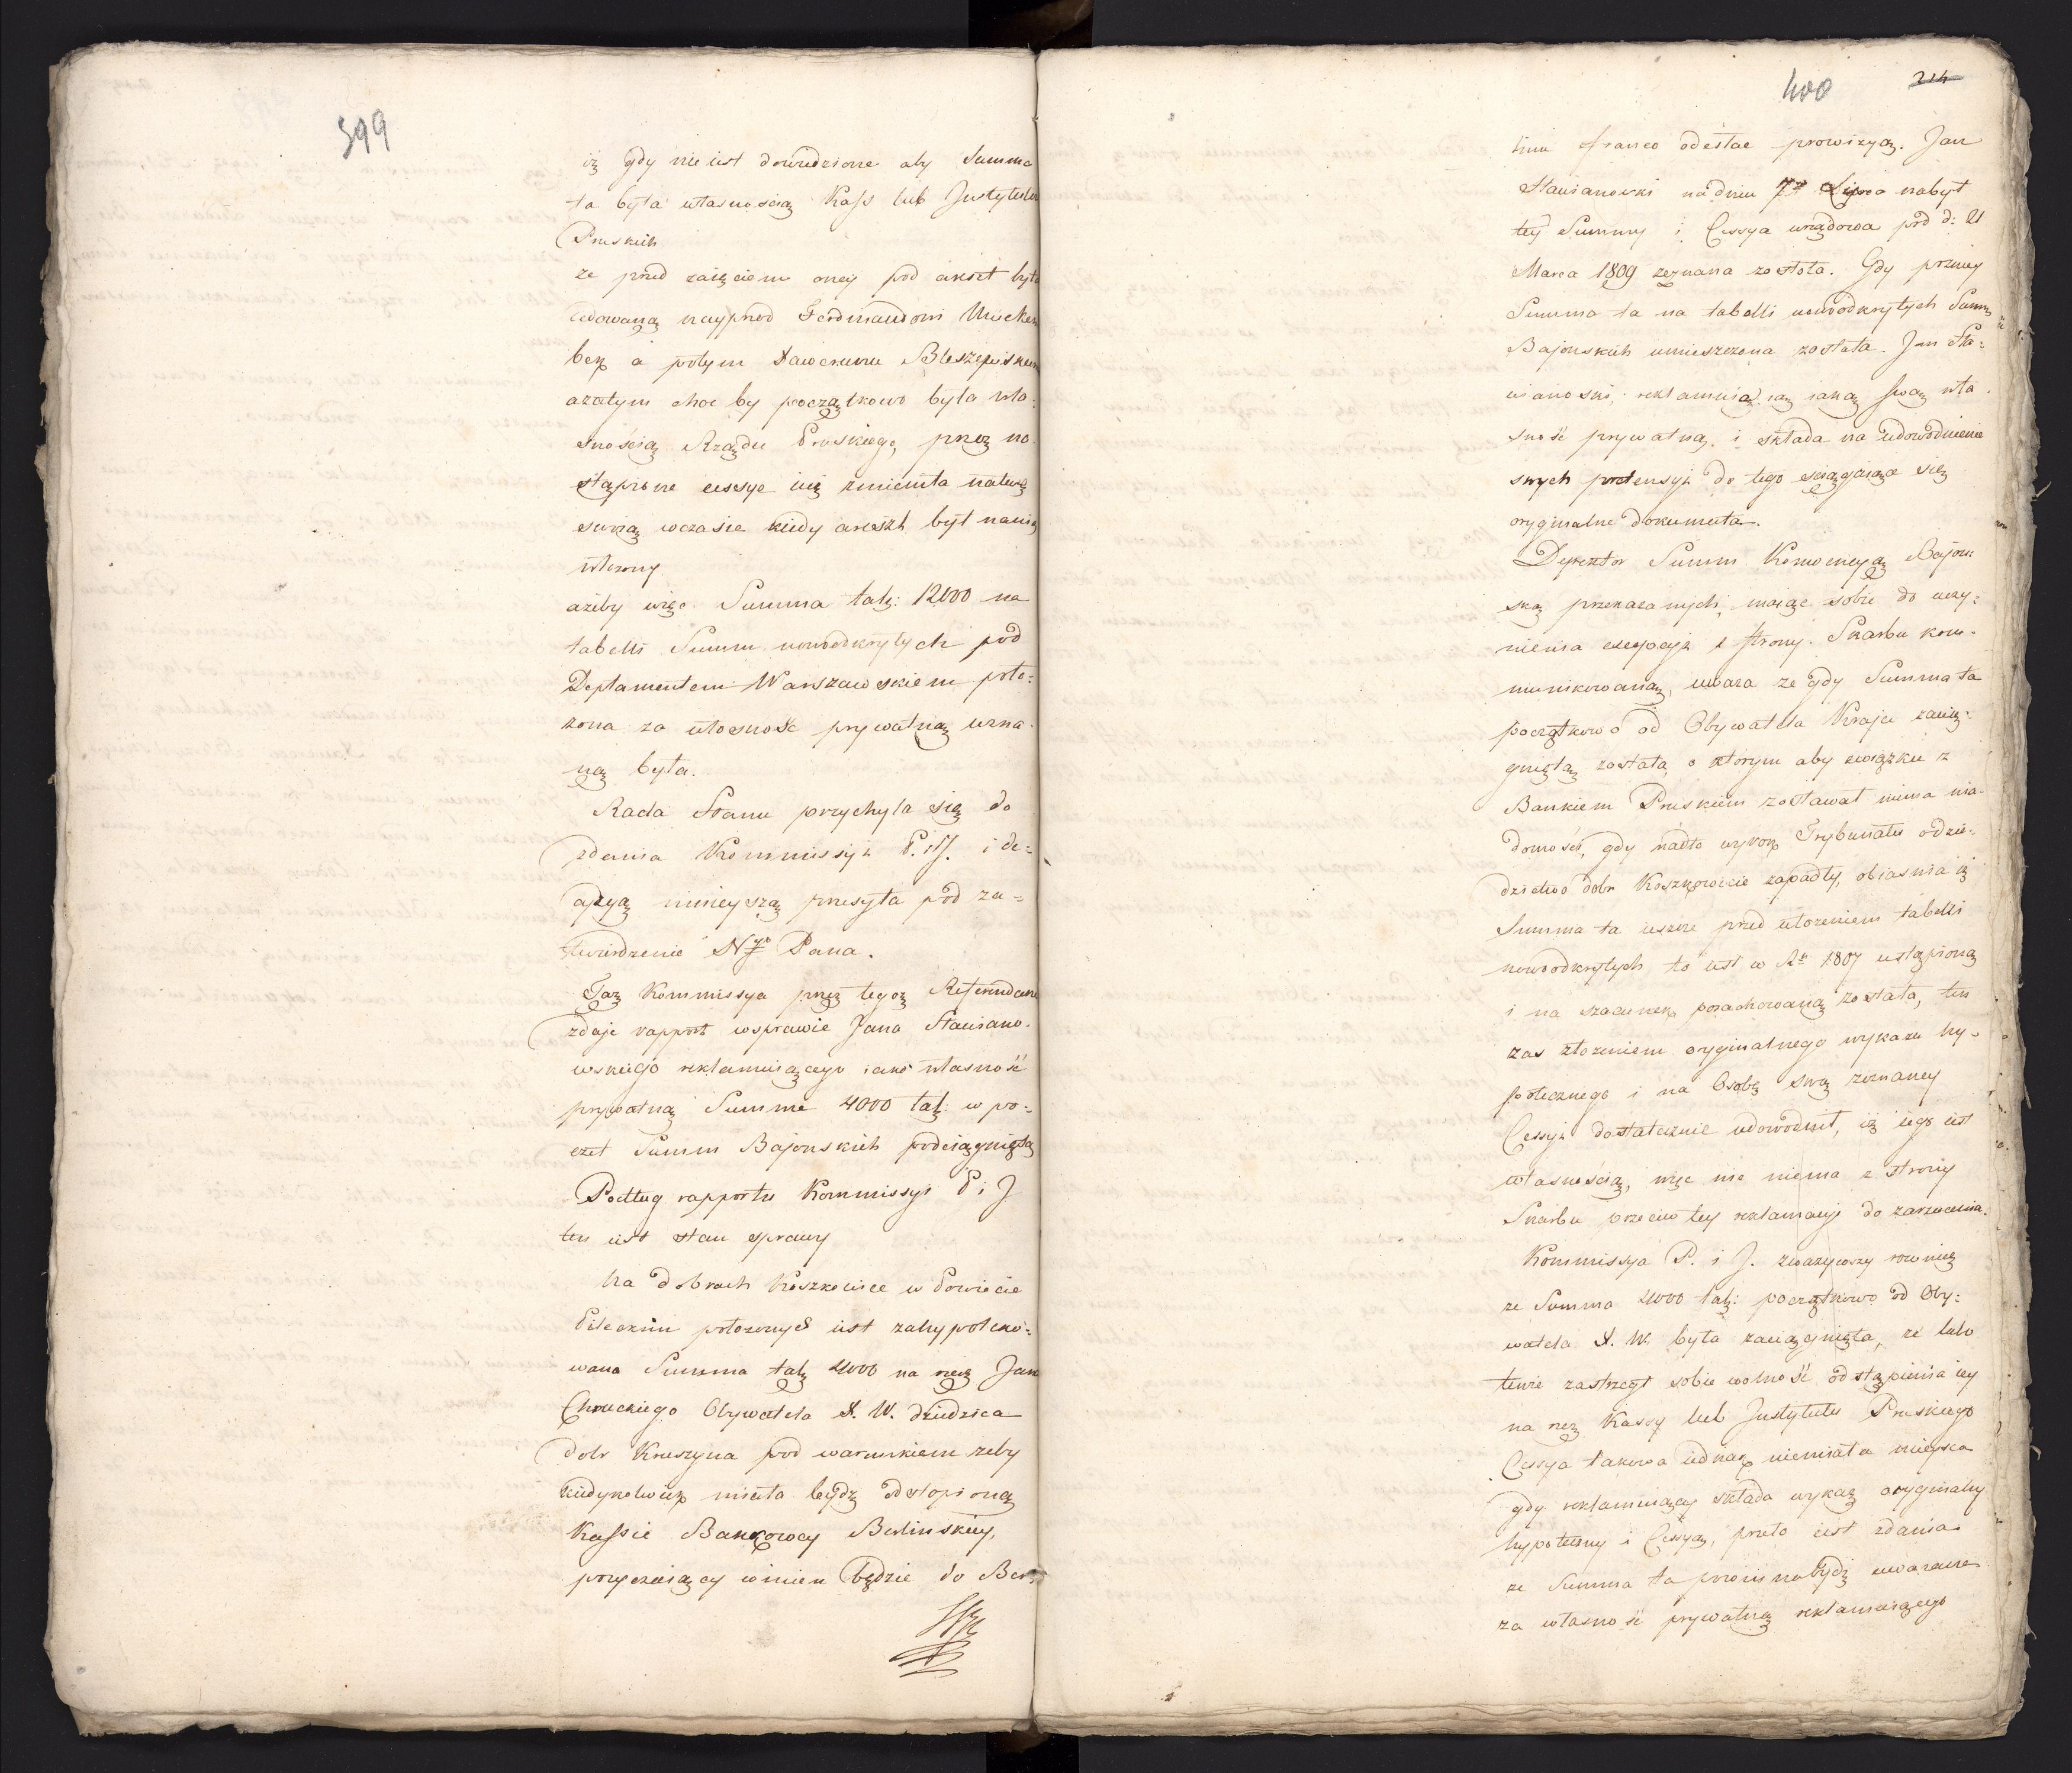 399
iż gdy nie iest dowiedzione aby Summa
ta była własnością Kass lub Instytutów
Pruskich
że przed zaięciem oney pod areszt była
cedowaną nayprzod Ferdinandowi Mücken
bek a potym Xaweremu Bleszyńskiemu
azatym choc by początkowo była wła-
snością Rządu Pruskiego, przez na-
stąpione cessye iuż zmieniła naturę
swoią wczasie kiedy areszt był na nią
włożony
ażeby więc Summa tal: 12000 na
tabelli Summ nowoodkrytych pod
Deptamentem Warszawskiem poło-
żona za własność prywatną uzna-
ną była.
Rada Stanu przychyla się do
zdania Kommissyi P. i J. i de-
cyzyą ninieyszą przesyła pod za-
twierdzenie N.go Pana.
Taż Kommissya przez tegoż Referendarza
zdaje rapport wsprawie Jana Stawiano-
wskiego reklamuiącego iako własność
prywatną Summe 4000 tal: w po-
czet Summ Bajońskich podciągniętą
Podług rapportu Kommissyi P i J
ten iest stan sprawy
Na Dobrach Koszkowice w Powiecie
Pileckim położonych iest zahypoteko-
wana Summa tal 4000 na rzecz Jana
Obywatela X. W. dziedzica
dobr Kruszyna pod warunkiem żeby
kiedykolwiek miała bydź odstąpioną
Kassie Bankowey Berlińskiey,
pożyczaiący winien będzie do Ber-
400
214
lina franco odesłać prowizyą. Jan
Stawianowski na dniu 7 Lipca nabył
tey Summy i Cessya urzędowa pod d: 21
Marca 1809 zeznana została. Gdy przeciey
Summa ta na tabelli nowoodkrytych Summ
Bajońskich umieszczona została. Jan Sta-
wianoski, reklamuią ią iako swą wła-
sność prywatną i składa na udowodnienie
swych pretensyi do tego sciągaiące się
oryginalne dokumenta.
Dyrektor Summ Konwencyą Bajoń-
ską przekazanych, maiąc sobie do uczy-
nienia excepcyi z strony Skarbu kom-
munikowaną, uważa że gdy Summa ta
początkowo od Obywatela Kraju zacią-
gniętą została, o którym aby związku z
Bankiem Pruskiem zostawał niema wia-
domości, gdy nadto wyrok Trybunału o dzie-
dzictwo dobr Koszkowice zapadły, obiaśnia iż
Summa ta ieszcze przed ułożeniem tabelli
nowoodkrytych to iest w R. 1807 ustąpioną
i na szacunek porachowaną została, ten
zas złożeniem oryginalnego wykazu hy-
potecznego i na Osobę swą zeznaney
Cessyi dostatecznie udowodnił, iż iego iest
własnością, więc nic niema z strony
Skarbu przeciw tey reklamacyi do zarzucenia.
Kommissya P. i J. zważywszy rownież
że Summa 4000 tal: początkowo od Oby-
watela X. W. była zaciągnięta, że lubo
tenże zastrzegł sobie wolność odstąpienia iey
na rzecz Kassy lub Instytutu Pruskiego
Cessya takowa iednak niemiała mieysca
gdy reklamuiący składa wykaz oryginalny
hypoteczny i Cessyą, przeto iest zdania
że Summa ta powinna bydź uważana
za własność prywatną reklamuiącego